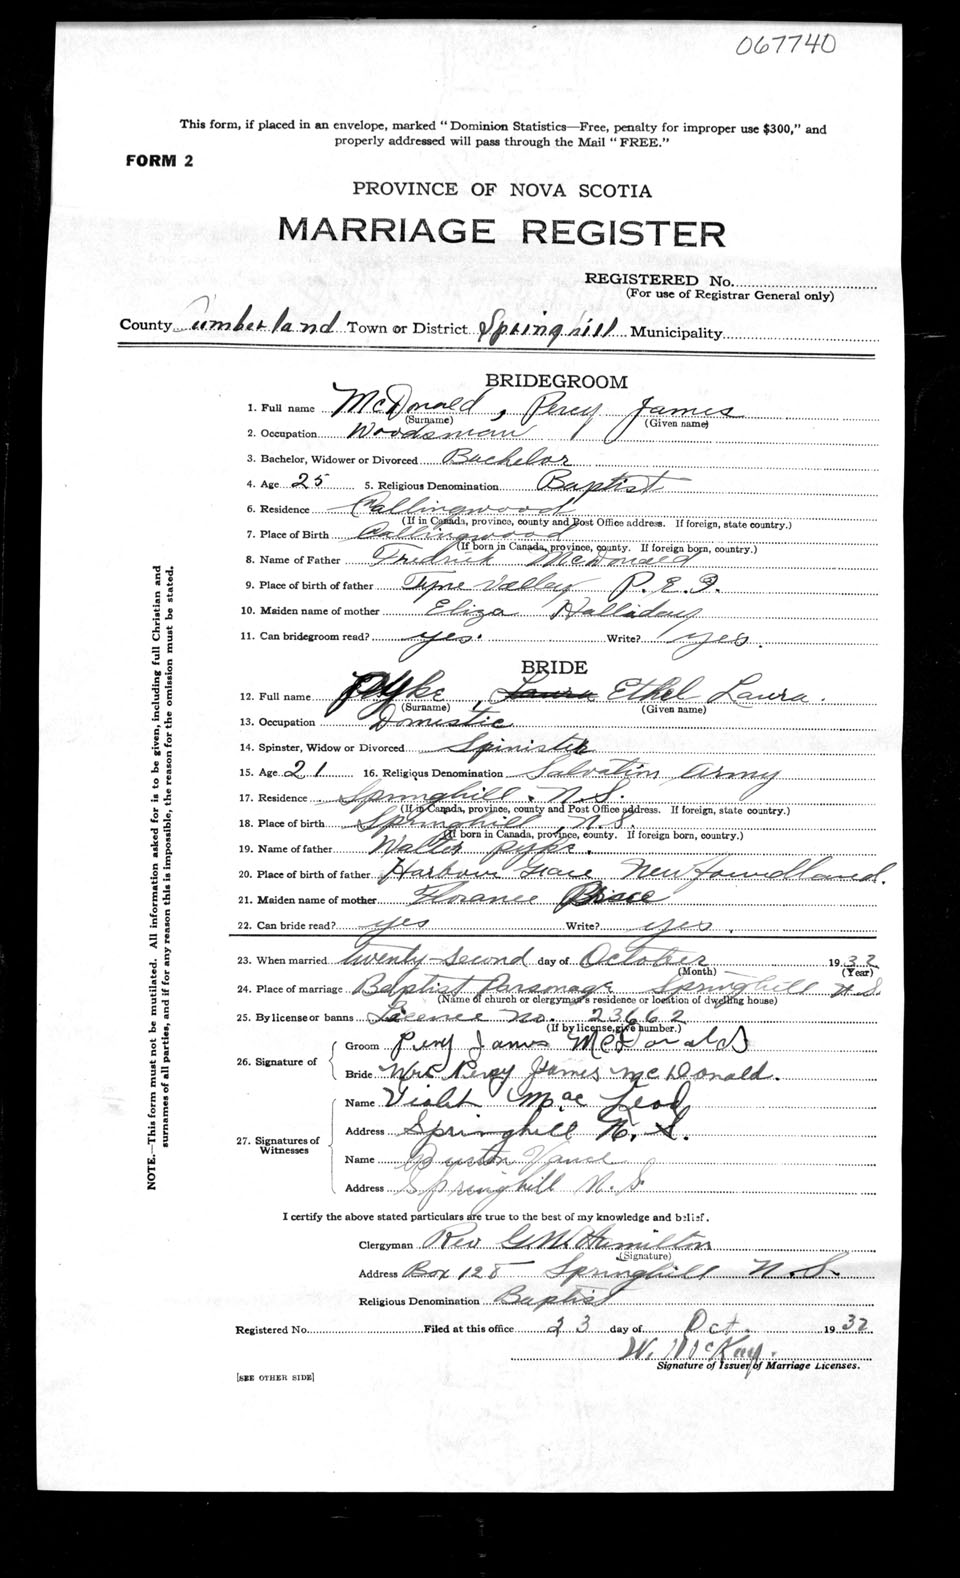 067740
This form, if placed in an envelope, marked "Dominion Statistics—Free, penalty for improper use $300," and
properly addressed will pass through the Mail "FREE."
FORM 2
PROVINCE OF NOVA SCOTIA
MARRIAGE REGISTER
REGISTERED No.
(For use of Registrar General only)
County Cumberland Town or District Springhill Municipality
BRIDEGROOM
1. Full name McDonald, Percy James
(Surname) (Given name)
2. Occupation Woodsman
3. Bachelor, Widower or Divorced Bachelor
4. Age 25 5. Religious Denomination Baptist
6. Residence Collingwood
(If in Canada, province, county and Post Office address. If foreign, state country.)
7. Place of Birth Collingwood
(If born in Canada, province, county. If foreign born, country.)
8. Name of Father Fredrick McDonald
9. Place of birth of father Tyne Valley P.E.I.
10. Maiden name of mother Eliza Halliday
11. Can bridegroom read? yes. Write? yes.
BRIDE
12. Full name Pyke, Laura Ethel Laura.
(Surname) (Given name)
13. Occupation Domestic
14. Spinster, Widow or Divorced Spinister
15. Age 21 16. Religious Denomination Salvation Army
17. Residence Springhill. N.S.
(If in Canada, province, county and Post Office address. If foreign, state country.)
18. Place of birth Springhill, N.S.
(If born in Canada, province, county. If foreign born, country.)
19. Name of father Walter Pyke.
20. Place of birth of father Harbour Grace Newfoundland.
21. Maiden name of mother Florance
22. Can bride read? yes Write? yes.
23. When married twenty-second day of October 1932
(Month) (Year)
24. Place of marriage Baptist Parsonage Springhill N.S.
(Name of church or clergyman's residence or location of dwelling house)
25. By license or banns Licence No. 23662
(If by license, give number.)
26. Signature of
Groom Percy James McDonald
Bride Mrs Percy James McDonald.
27. Signatures of
Witnesses
Name Violet MacLeod
Address Springhill N.S.
Name Vance
Address Springhill N.S.
I certify the above stated particulars are true to the best of my knowledge and belief.
Clergyman Rev G.W. Hamilton
(Signature)
Address Box 128 Springhill N.S.
Religious Denomination Baptist
Registered No. Filed at this office 23 day of Oct. 1932
W. McKay.
Signature of Issuer of Marriage Licenses.
[SEE OTHER SIDE]
NOTE.—This form must not be mutilated. All information asked for is to be given, including full Christian and
surnames of all parties, and if for any reason this is impossible, the reason for the omission must be stated.